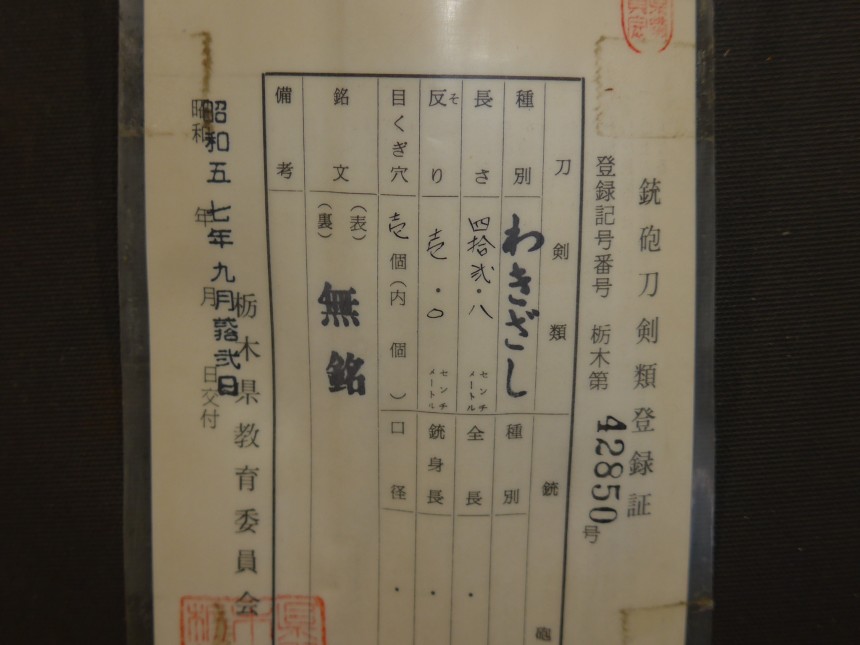 銃砲刀剣類登録証
登録記号番号 栃木第 42850 号
刀剣類
銃砲
種別 わきざし
種別
長さ 四拾弐・八 センチメートル
全長 ・
反り そ 壱・〇 センチメートル
銃身長 ・
目くぎ穴 壱個(内 個)
口径 ・
銘文 (表)
(裏)
無銘
備考
昭和五七年九月拾弐日
昭和 年 月 日交付
栃木県教育委員会